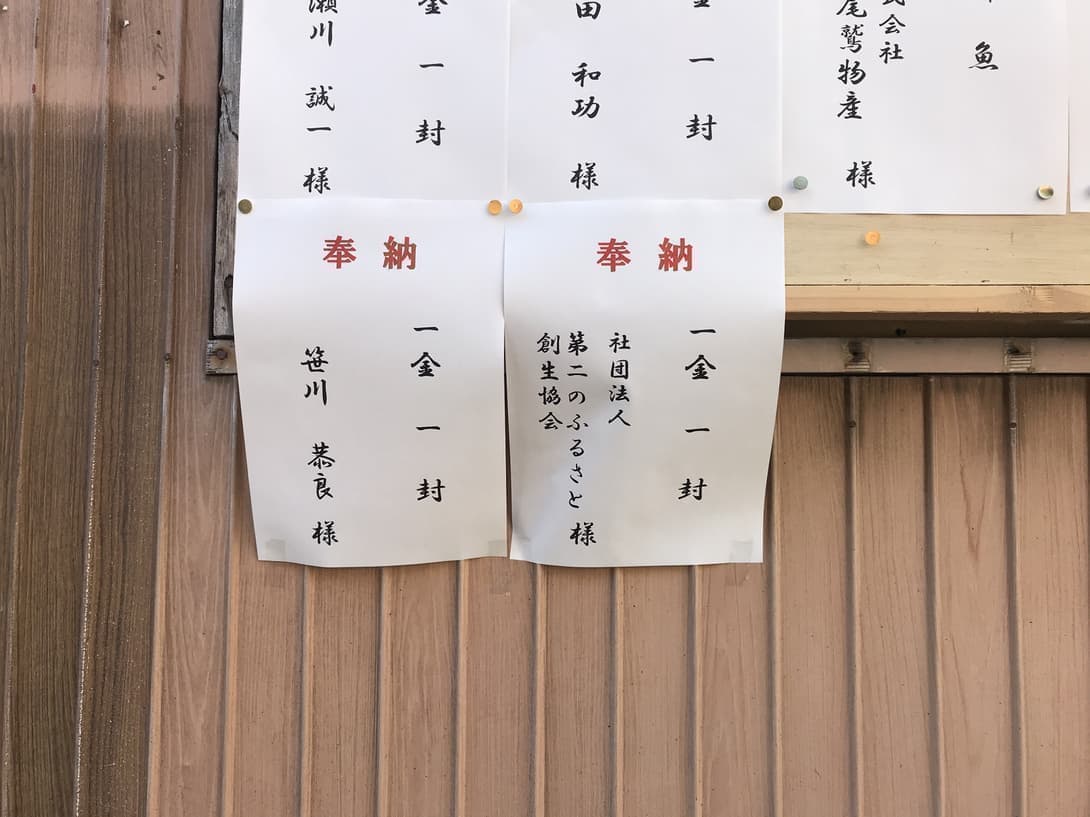 金一封
瀬川 誠一 様
金一封
田 和功 様
魚
式会社
尾鷲物産 様
奉納
一金一封
笹川 恭良 様
奉納
一金一封
社団法人
第二のふるさと
創生協会 様